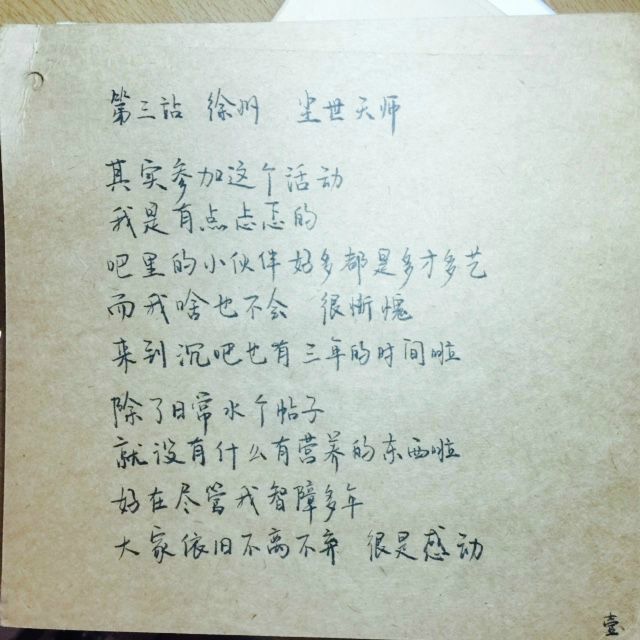 第三站 徐州 尘世天师
其实参加这个活动
我是有点忐忑的
吧里的小伙伴好多都是多才多艺
而我啥也不会 很惭愧
来到沉吧也有三年的时间啦
除了日常水个帖子
就没有什么有营养的东西啦
好在尽管我智障多年
大家依旧不离不弃 很是感动
壹